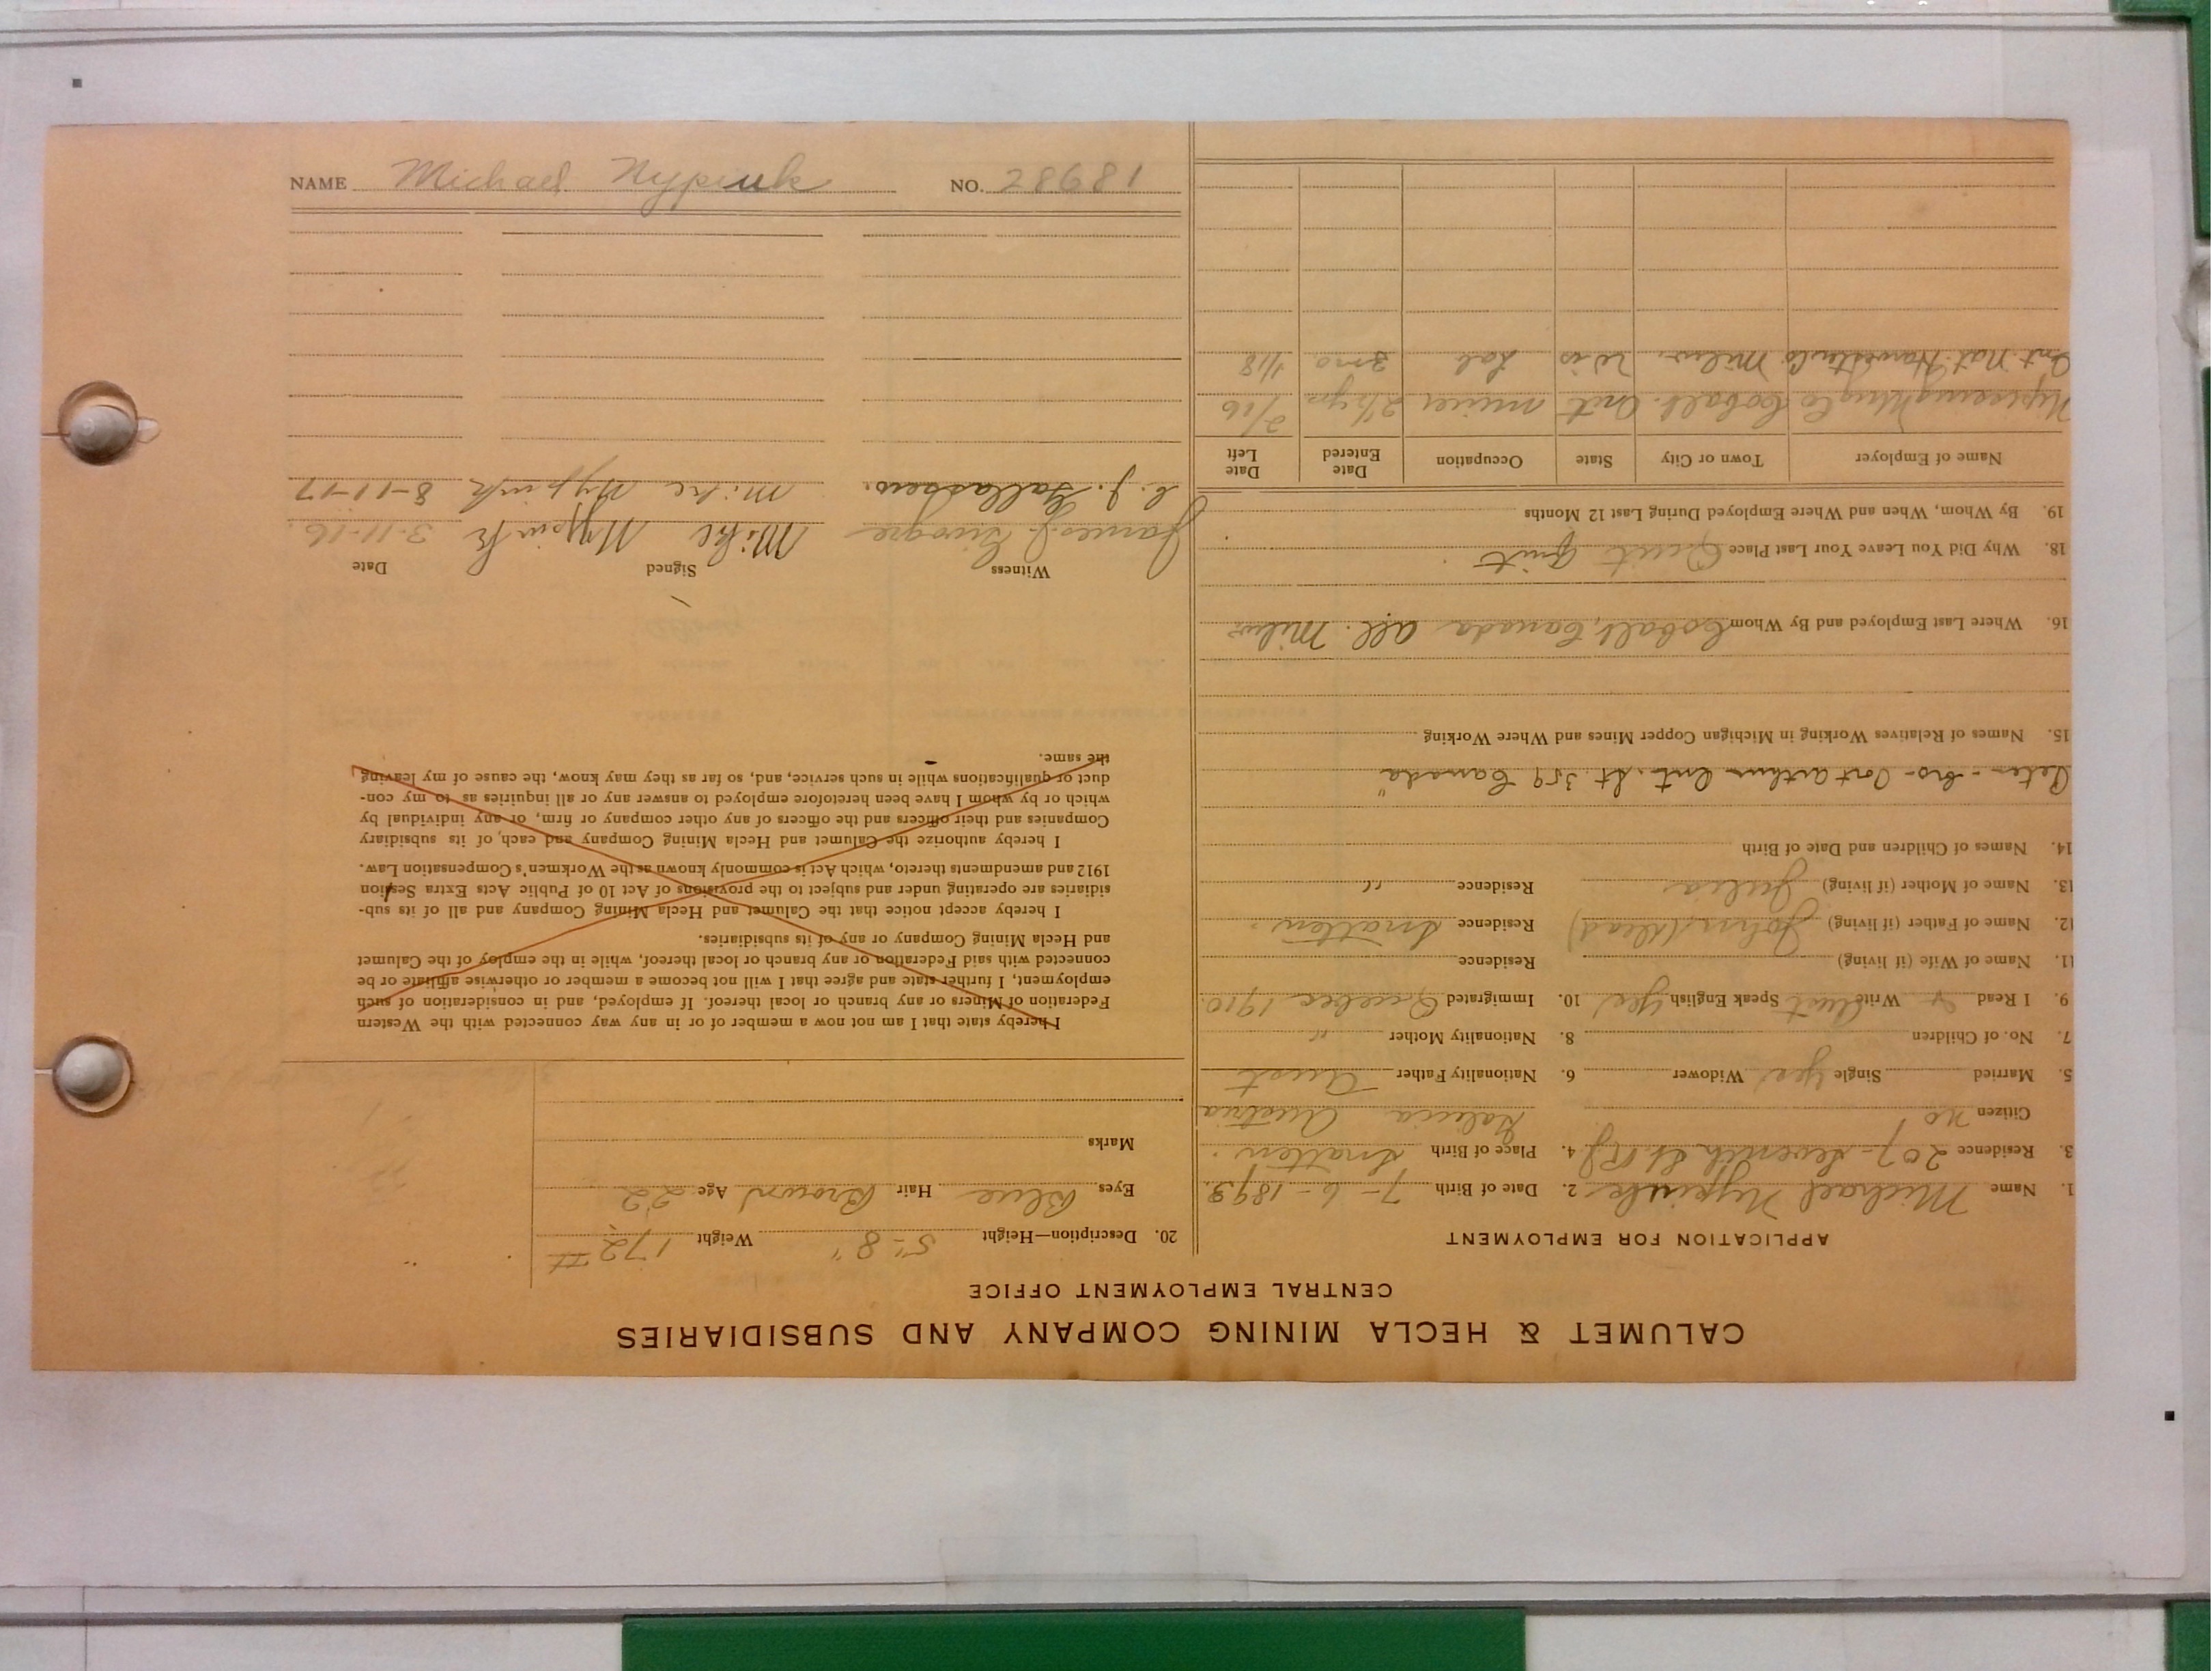 NAME Michael Nypiuk NO. 28681
CALUMET & HECLA MINING COMPANY AND SUBSIDIARIES
CENTRAL EMPLOYMENT OFFICE
APPLICATION FOR EMPLOYMENT
1. Name Michael Nypiuk 2. Date of Birth 7-6-1893
3. Residence 207-Seventh St 4. Place of Birth Snatten.
Citizen no Galicia Austria
5. Married Single Yes Widower 6. Nationality Father Aust
7. No. of Children 8. Nationality Mother "
9. I Read Write Aust Speak English Yes 10. Immigrated Quebec 1910.
11. Name of Wife (if living) Residence
12. Name of Father (if living) John (dead) Residence Snatten.
13. Name of Mother (if living) Julia Residence "
14. Names of Children and Date of Birth
Peter - bro - Port Arthur Ont. St. 359 Canada"
15. Names of Relatives Working in Michigan Copper Mines and Where Working
16. Where Last Employed and By Whom Cobalt, Canada all. Milw
18. Why Did You Leave Your Last Place Quit Quit
19. By Whom, When and Where Employed During Last 12 Months
Name of Employer Town or City State Occupation Date Entered Date Left
Nipissing Mng Co Cobalt. Ont miner 2 1/2 yrs 2/16
Int. Nat. Harvester Co Milw. Wis Lab 3 mo 1/18
20. Description—Height 5"-8" Weight 172 #
Eyes Blue Hair Brown Age 22
Marks
I hereby state that I am not now a member of or in any way connected with the Western
Federation of Miners or any branch or local thereof. If employed, and in consideration of such
employment, I further state and agree that I will not become a member or otherwise affiliate or be
connected with said Federation or any branch or local thereof, while in the employ of the Calumet
and Hecla Mining Company or any of its subsidiaries.
I hereby accept notice that the Calumet and Hecla Mining Company and all of its sub-
sidiaries are operating under and subject to the provisions of Act 10 of Public Acts Extra Session
1912 and amendments thereto, which Act is commonly known as the Workmen's Compensation Law.
I hereby authorize the Calumet and Hecla Mining Company and each, of its subsidiary
Companies and their officers and the officers of any other company or firm, or any individual by
which or by whom I have been heretofore employed to answer any or all inquiries as to my con-
duct or qualifications while in such service, and, so far as they may know, the cause of my leaving
the same.
Witness Signed Date
James J. Mike Nypiuk 3-11-16
C. J. Mike Nypiuk 8-11-17